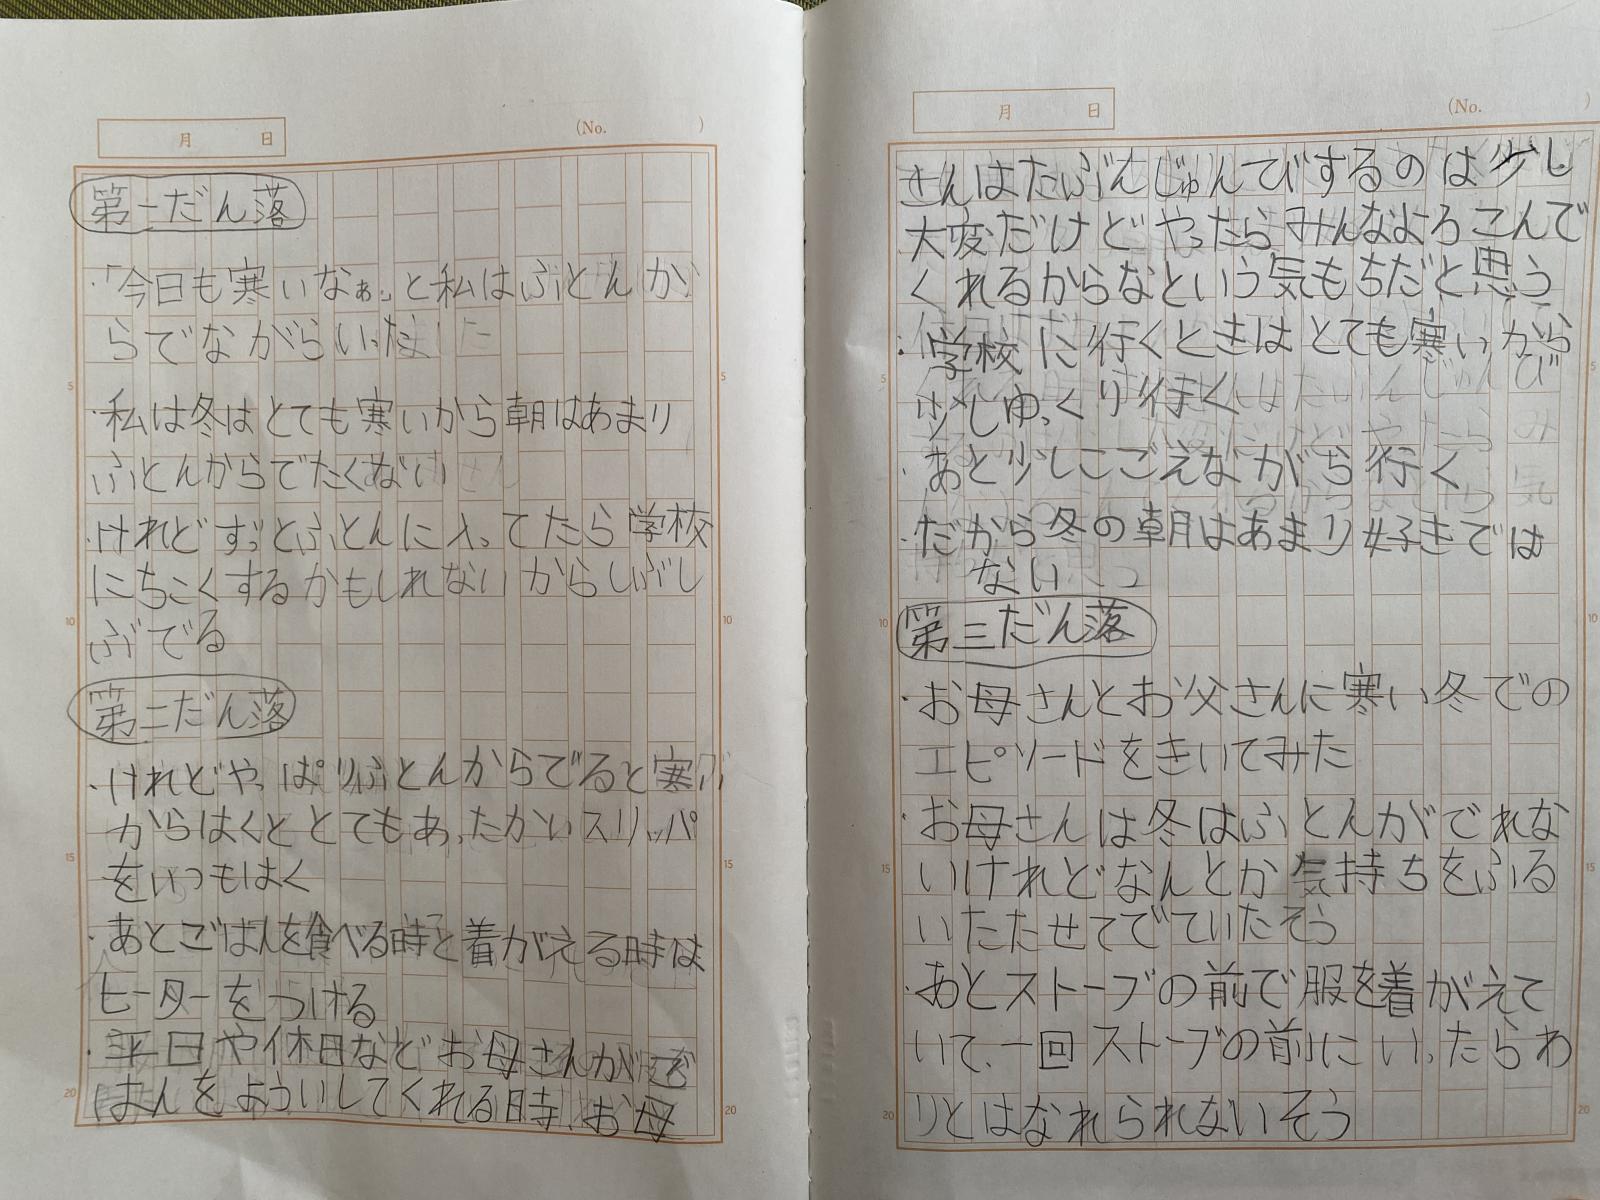 月 日 (No. )
第一だん落
・「今日も寒いなぁ。」と私はふとんか
らでながらいった
・私は冬はとても寒いから朝はあまり
ふとんからでたくない
・けれどずっとふとんに入ってたら学校
にちこくするかもしれないからしぶし
ぶでる
5
10
第二だん落
・けれどやっぱりふとんからでると寒い
からはくととてもあったかいスリッパ
をいつもはく
・あとごはんを食べる時と着がえる時は
ヒーターをつける
・平日や休日などお母さんがご
はんをよういしてくれる時、お母
15
20
月 日 (No. )
さんはたぶんじゅんびするのは少し
大変だけどやったらみんなよろこんで
くれるからなという気もちだと思う
・学校に行くときはとても寒いから
少しゆっくり行く
・あと少しこごえながら行く
・だから冬の朝はあまり好きでは
ない
5
10
第三だん落
・お母さんとお父さんに寒い冬での
エピソードをきいてみた
・お母さんは冬はふとんがでれな
いけれどなんとか気持ちをふる
いたたせてでていたそう
・あとストーブの前で服を着がえて
いて、一回ストーブの前にいったらわ
りとはなれられないそう
15
20